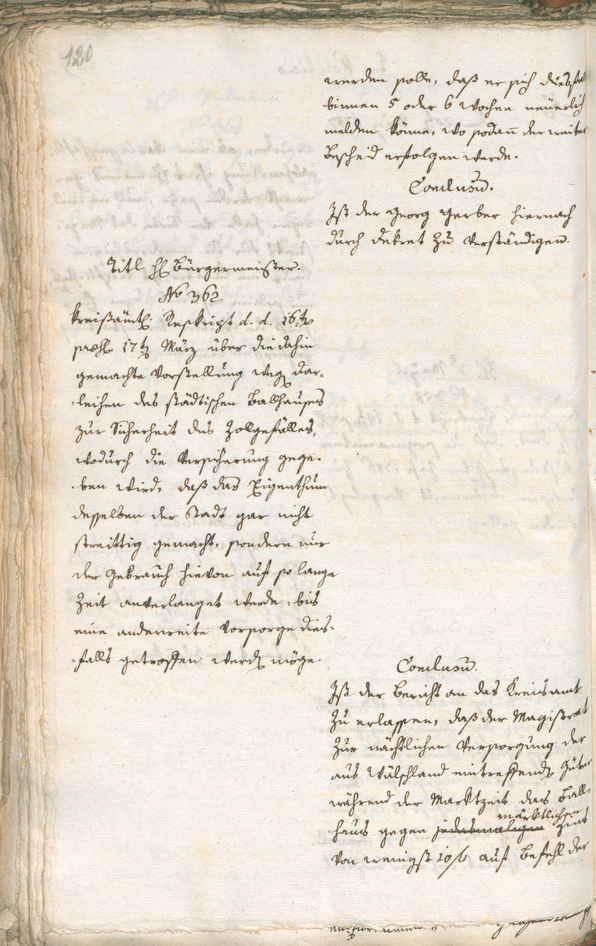 120
werden solle, daß er sich diesfals
binnen 5 oder 6 Wochen neüerlich
melden könne, wo sodan̄ der weitere
Bescheid erfolgen werde.
Conclusū.
Ist der Georg Gerber hiernach
durch Dekret zu verständigen.
Titl H Bürgermeister.
No 362.
Kreisämtl. Reskript d. d. 16t
praes. 17t März über die dahin
gemachte Vorstellung weg Dar-
-leihen des städtischen Ballhauses
zur Sicherheit des Zolgefälles,
wodurch die Versicherung gege-
-ben wird, daß das Eigenthum
desselben der Stadt gar nicht
streittig gemacht, sondern nur
der Gebrauch hievon auf so lange
Zeit anverlanget werde, bis
eine anderweite Vorsorge dies-
-falls getroffen werd möge.
Conclusū.
Ist der Bericht an das Kreisamt
zu erlassen, daß der Magistrat
zur nächtlichen Versorgung der
aus Wälschland eintreffend Güter
während der Marktzeit das Ball-
marktlichen
haus gegen jedesmaligen Zins
von wenigst 10 f auf Befehl der